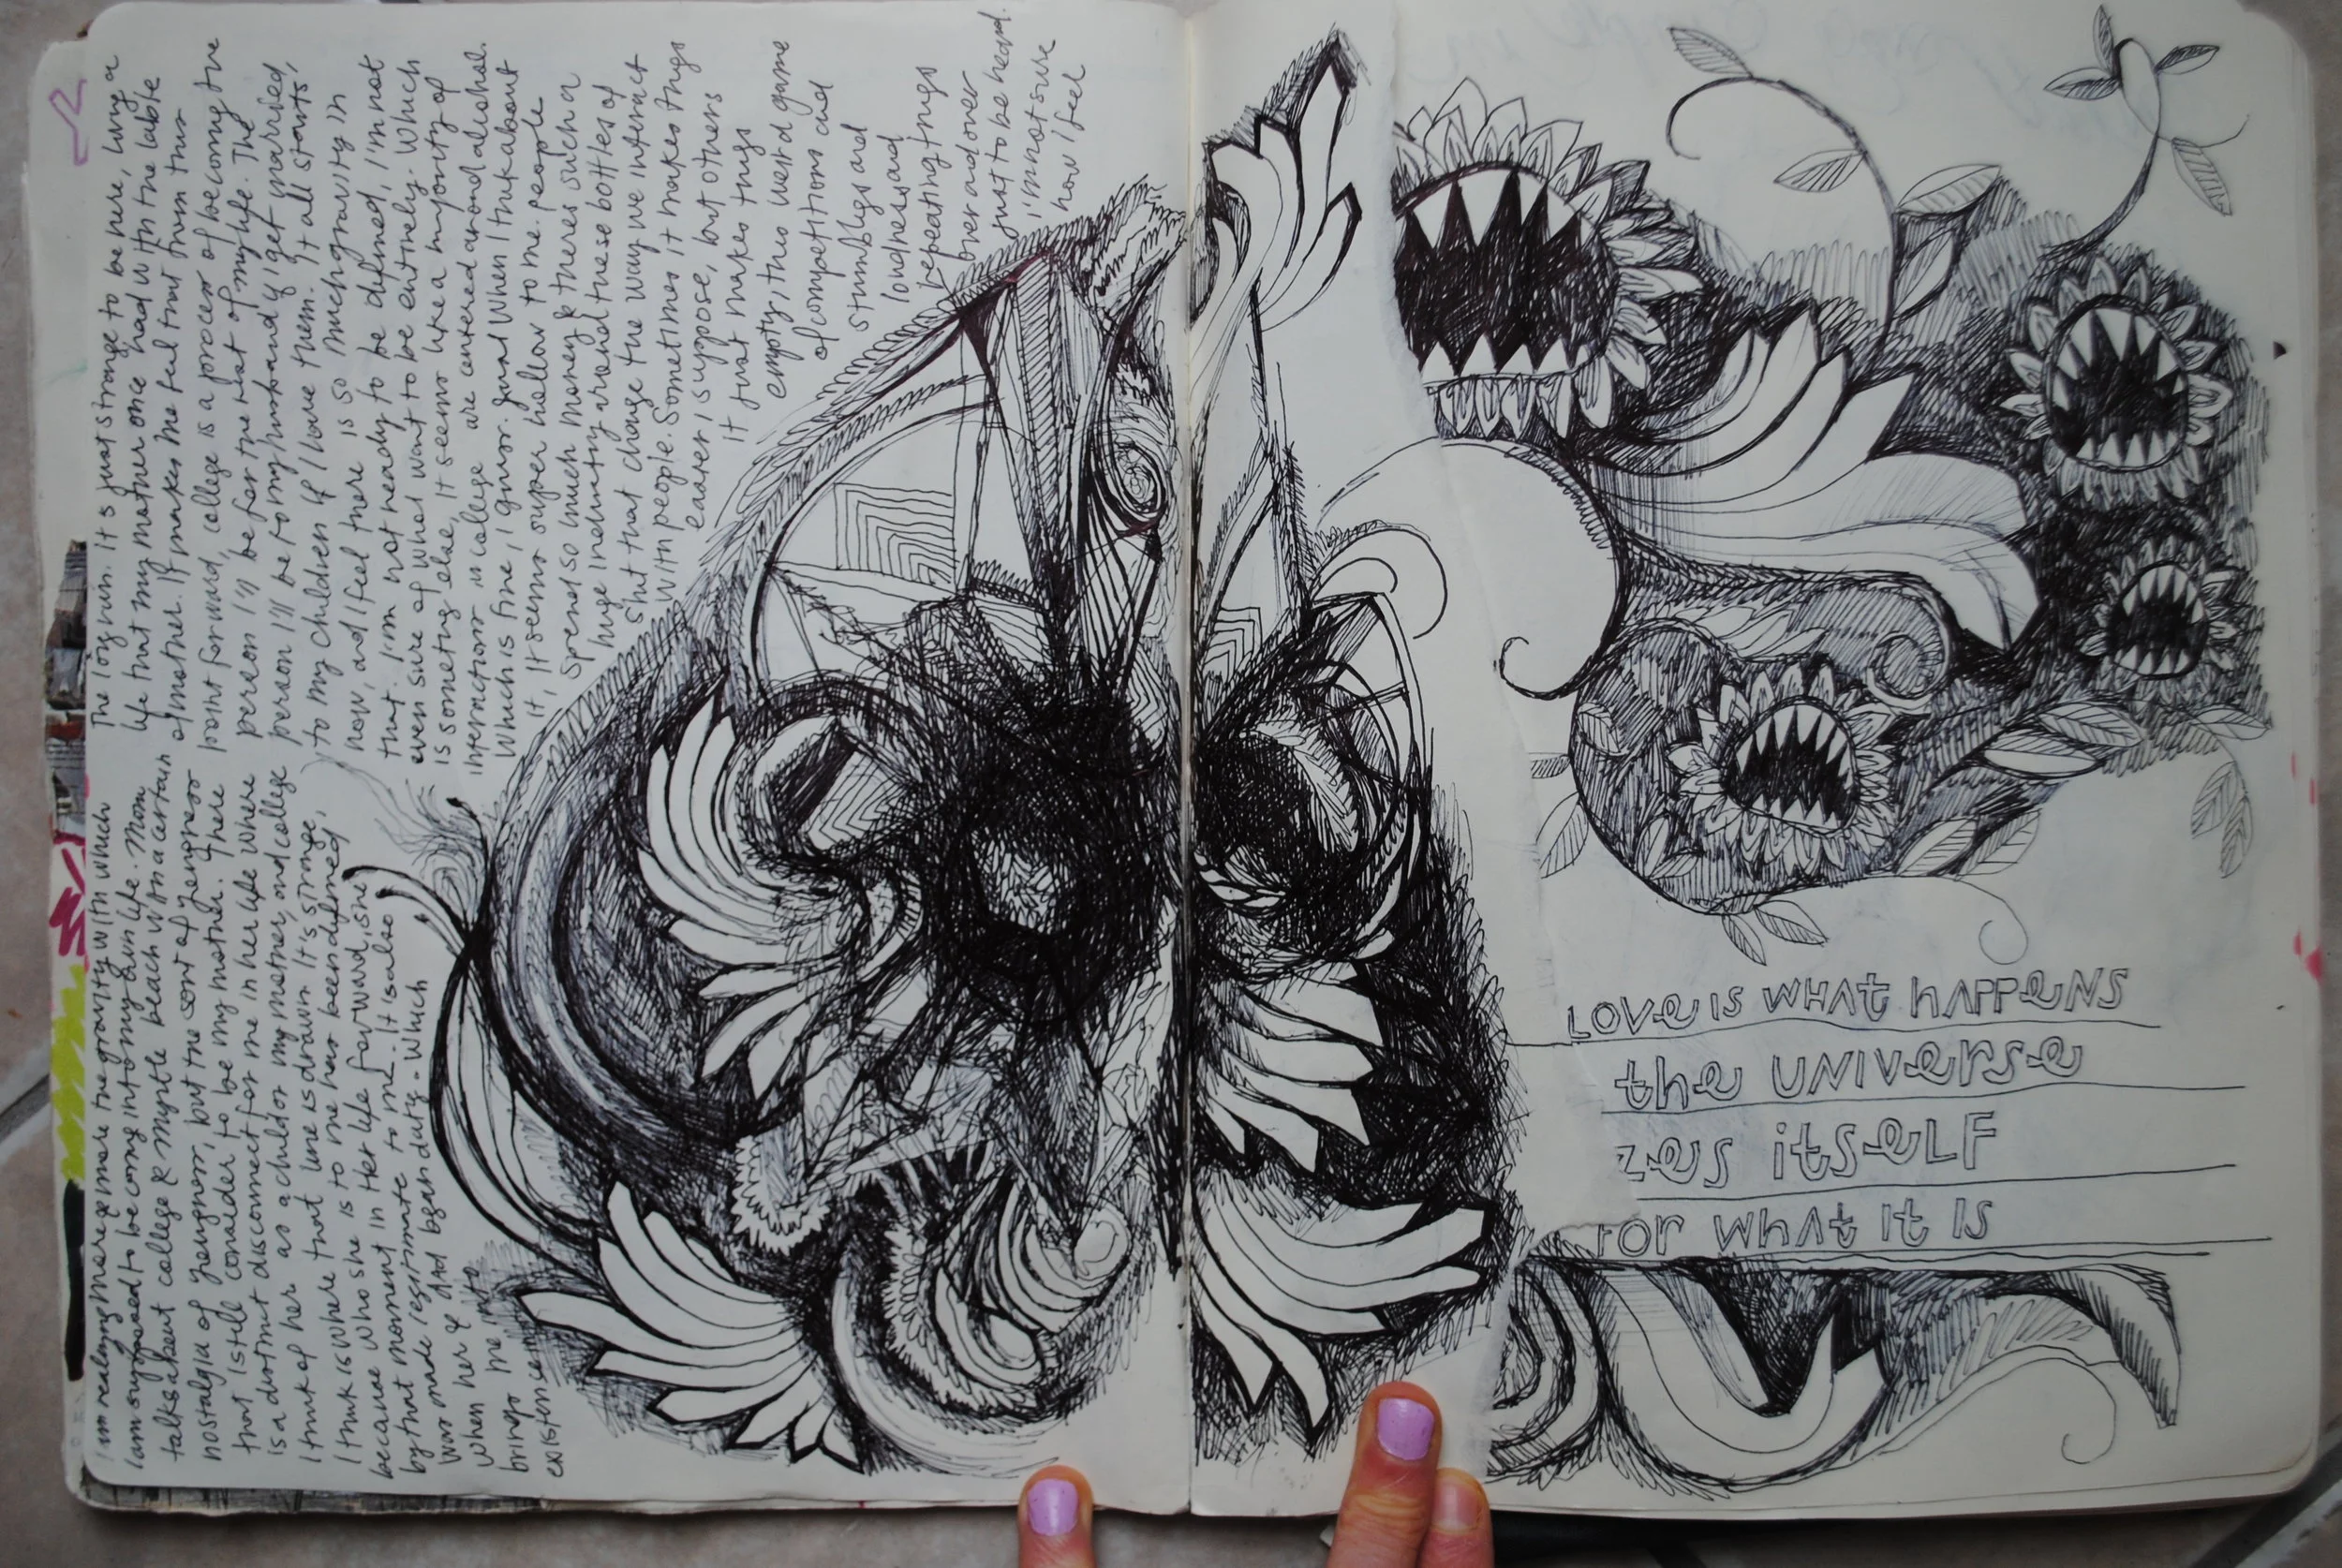 I am realizing more & more the gravity with which
I am supposed to be coming into my own life. Mom
talks about college & myrtle beach with a certain
nostalgia of youngness, but the sort of youngness
that I still consider to be my mother. there
is a distinct disconnect for me in her life where
I think of her as a child or my mother, and college
I think is where that line is drawn. It's strange,
because who she is to me has been defined
by that moment in her life forward, she
was made legitimate to me. It is also
when her & dad began dating - which
brings me into
existence in
The long run. It's just strange to be here, living a
life that my mother once had with the lable
of mother. It makes me feel that from this
point forward, college is a process of becoming the
person I'll be for the rest of my life. The
person I'll be to my husband if I get married,
to my children if I have them. It all starts
now, and I feel there is so much gravity in
that. I'm not ready to be defined, I'm not
even sure of what I want to be entirely. Which
is something else, It seems like a majority of
interactions in college are centered around alcohol.
Which is fine, I guess. When I think about
it, It seems super hollow to me. people
spend so much money & theres such a
huge industry around these bottles of
shit that change the way we interact
with people. Sometimes it makes things
easier i suppose, but others
it just makes things
empty, this weird game
of competitions and
stumblings and
loudness and
repeating things
over and over
just to be heard.
i'm not sure
how i feel
Love is what happens
the universe
zes itself
for what it is